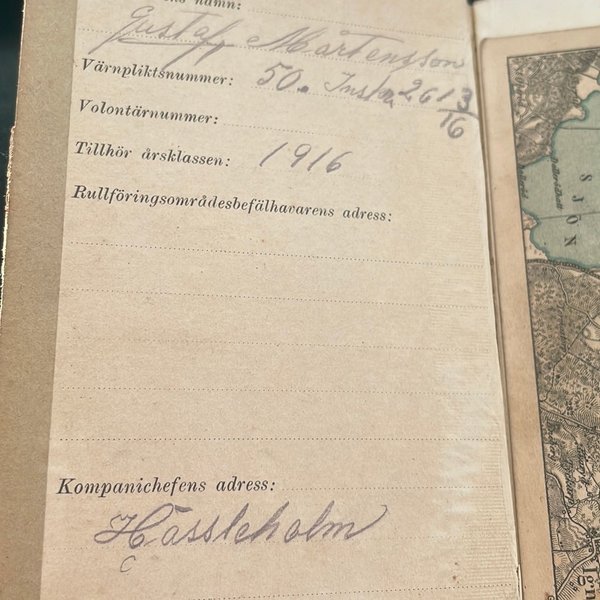 ns namn:
Gustaf Mårtensson
Värnpliktsnummer: 50. 26 13/16
Volontärnummer:
Tillhör årsklassen: 1916
Rullföringsområdesbefälhavarens adress:
Kompanichefens adress:
Hässleholm
SJÖN